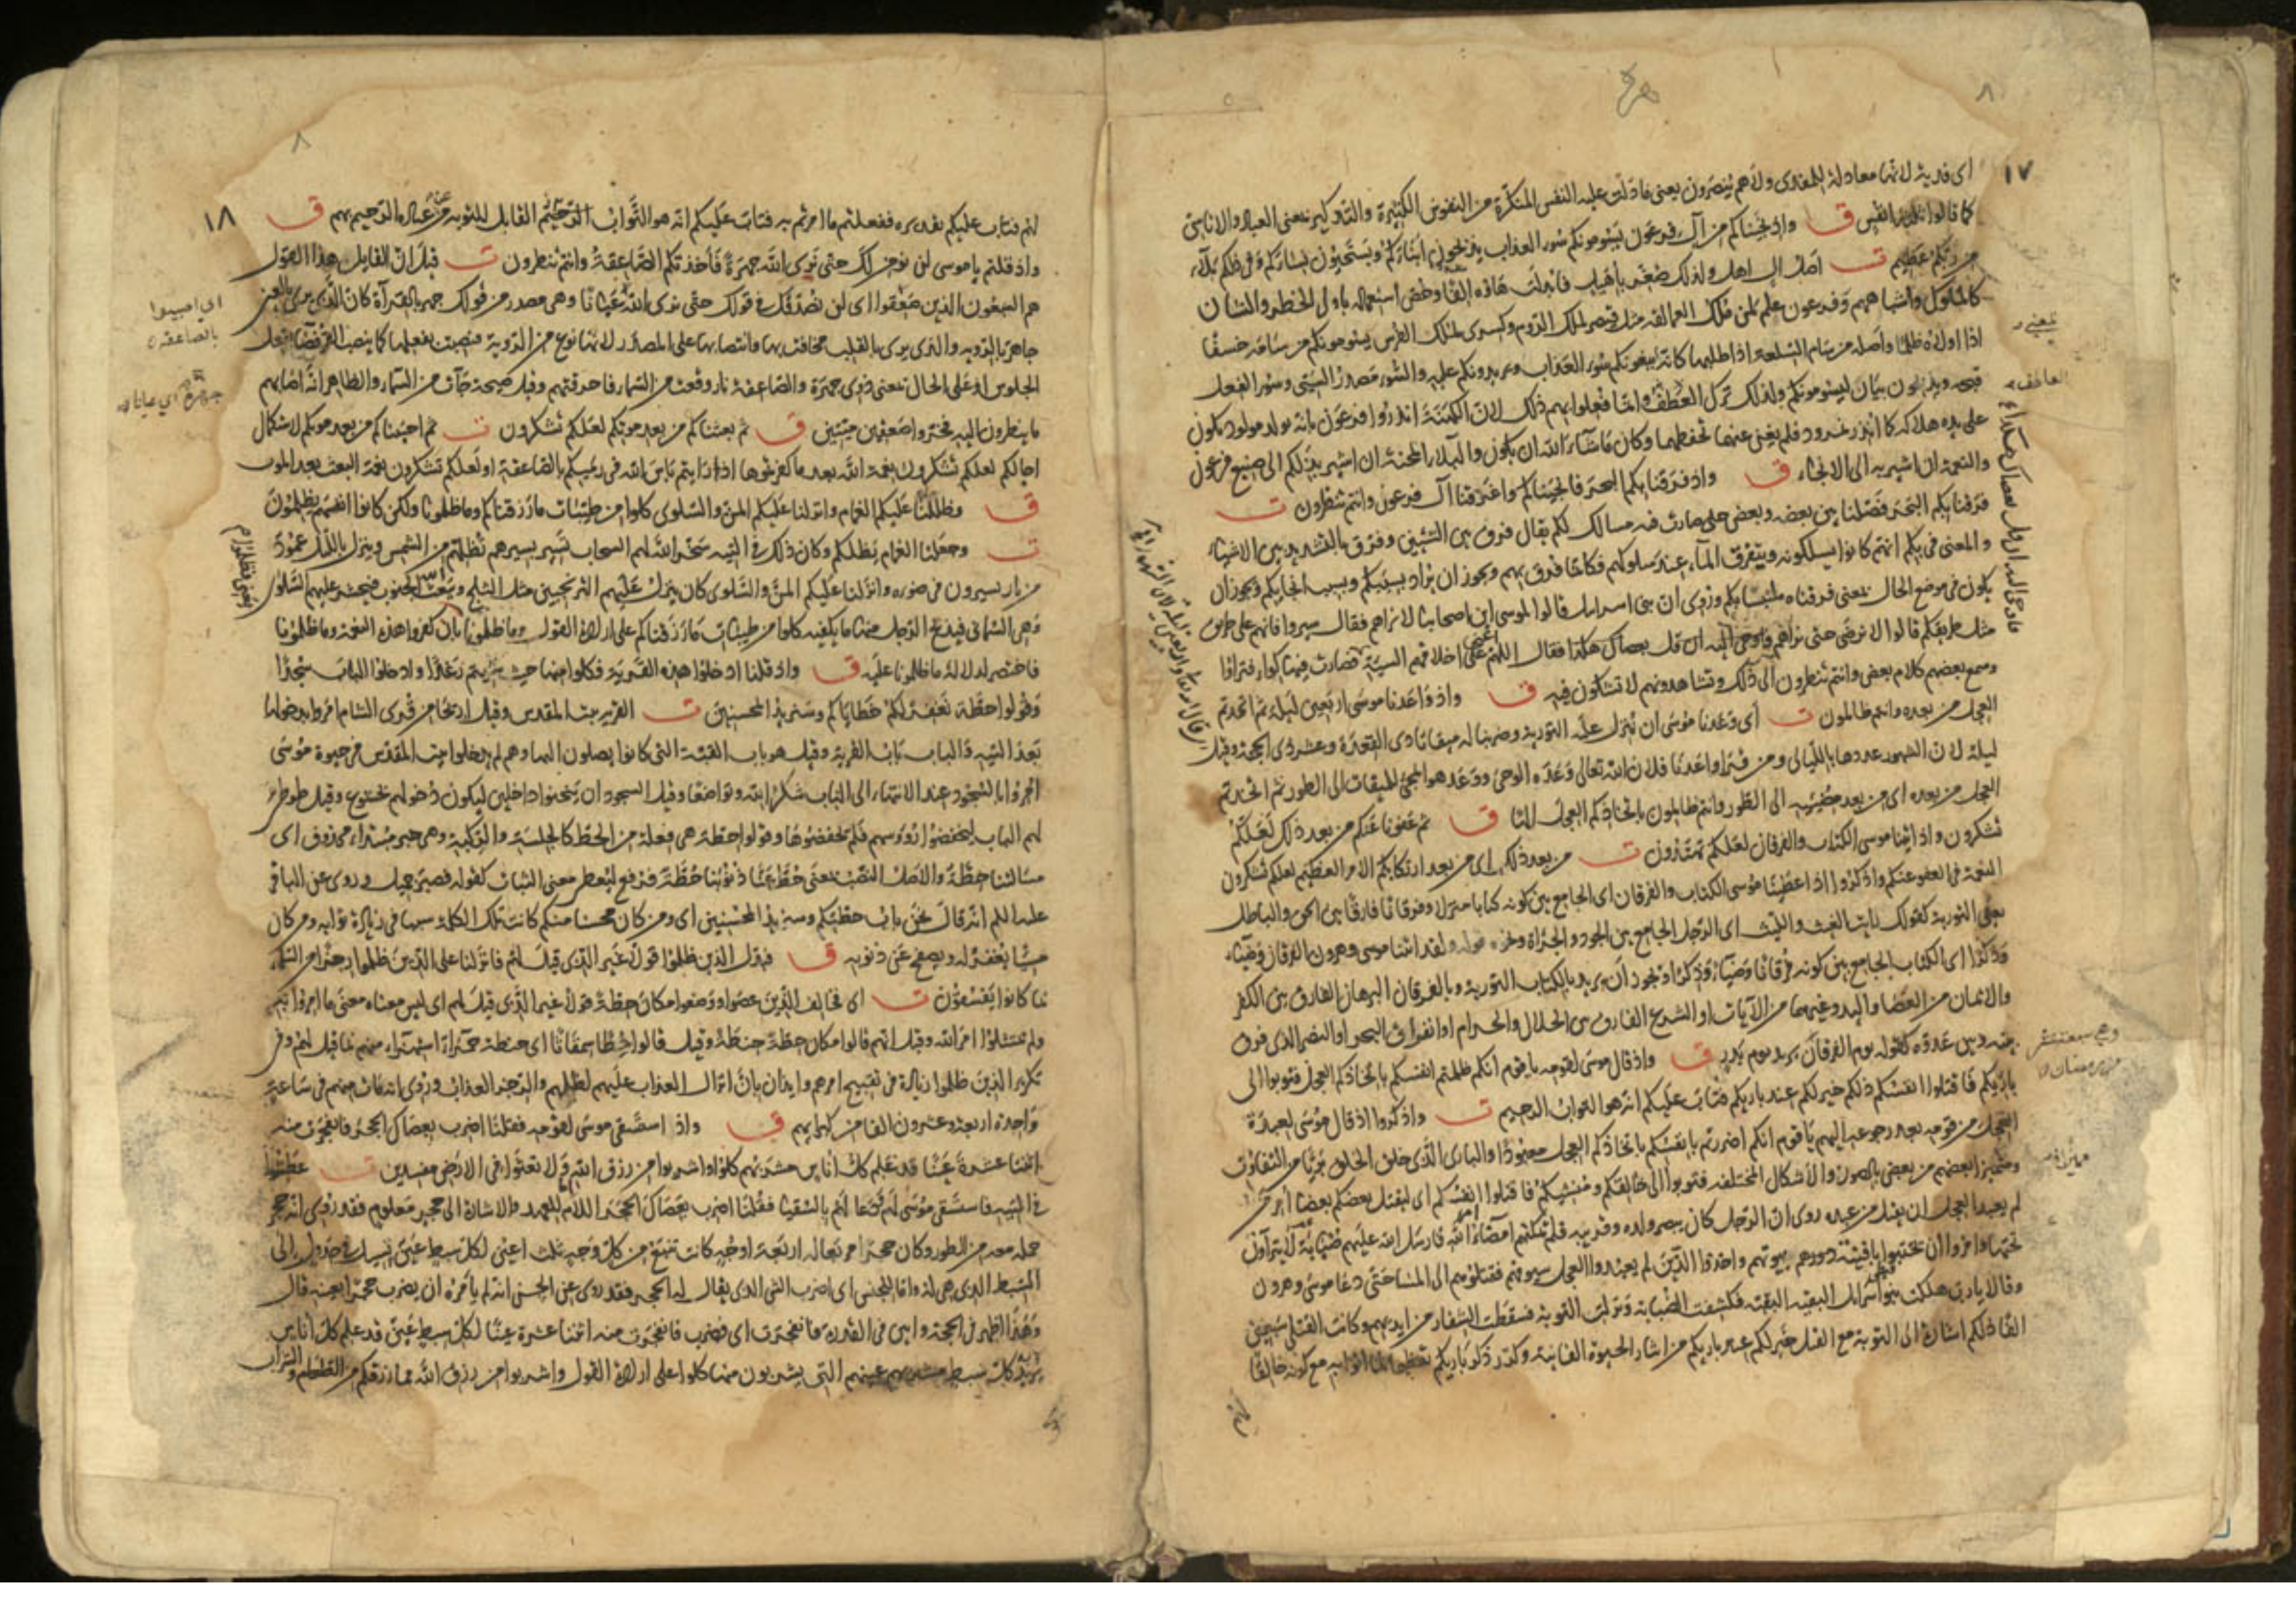 ١٧
اى فدية لانها معادلة للمفدى ولا هم ينصرون يعنى ما دلت عليه النفس المنكرة من النفوس الكثيرة والتذكير بمعنى العباد والاناسى
كما قالوا ثلثة انفس ق واذ نجيناكم من آل فرعون يسومونكم سوء العذاب يذبحون ابناءكم ويستحيون نساءكم وفى ذلكم بلاء
من ربكم عظيم ت اصل ال اهل ولذلك صغر باهيل فابدلت هاؤه الفا وخص استعماله باولى الخطر والشان
كالملوك واشباههم وفرعون علم لمن ملك العمالقة مثل قيصر لملك الروم وكسرى لملك الفرس يسومونكم من سامه خسفا
اذا اولاه ظلما واصله من سام السلعة اذا طلبها كانه يبغونكم سوء العذاب ويريدونكم عليه والسوء مصدر السيى وسوء الفعل
قبحه ويذبحون بيان ليسومونكم ولذلك ترك العطف وانما فعلوا بهم ذلك لان الكهنة انذروا فرعون بانه يولد مولود يكون
على يده هلاكه كما انذر نمرود فلم يغن عنهما تحفظهما وكان ما شاء الله ان يكون والبلاء المحنة ان اشير بذلكم الى صنيع فرعون
والنعمة ان اشير به الى الانجاء ق واذ فرقنا بكم البحر فانجيناكم واغرقنا آل فرعون وانتم تنظرون ت
فرقنا بكم البحر فصلنا بين بعضه وبعض حتى صارت فيه مسالك لكم يقال فرق بين الشيئين وفرق بالتشديد بين الاشياء
والمعنى فى بكم انهم كانوا يسلكونه ويتفرق الماء عند سلوكهم فكانما فرق بهم ويجوز ان يراد بسببكم وبسبب انجايكم ويجوز ان
يكون فى موضع الحال بمعنى فرقناه ملتبسا بكم وروى ان بنى اسرايل قالوا لموسى اين اصحابنا لا نراهم فقال سيروا فانهم على طريق
مثل طريقكم قالوا لا نرضى حتى نراهم فاوحى اليه ان قل بعصاك هكذا فقال اللهم اعنى على اخلاقهم السيئة فصارت فيها كوا فتراؤا
وسمع بعضهم كلام بعض وانتم تنظرون الى ذلك وتشاهدونهم لا تشكون فيه ق واذ واعدنا موسى اربعين ليلة ثم اتخذتم
العجل من بعده وانتم ظالمون ت اى وعدنا موسى ان ننزل عليه التورية وضربنا له ميقاتا ذى القعدة وعشر ذى الحجة وقيل
ليلة لان الشهور عددها بالليالى ومن قرا واعدنا فلان الله تعالى وعده الوحى ووعد هو المجئ للميقات الى الطور ثم اتخذتم
العجل من بعده اى من بعد مضيه الى الطور وانتم ظالمون باتخاذكم العجل الها ق ثم عفونا عنكم من بعد ذلك لعلكم
تشكرون واذ اتينا موسى الكتاب والفرقان لعلكم تهتدون ت من بعد ذلك اى من بعد ارتكابكم الامر العظيم لعلكم تشكرون
النعمة فى العفو عنكم واذكروا اذ اعطينا موسى الكتاب والفرقان اى الجامع بين كونه كتابا منزلا وفرقانا فارقا بين الحق والباطل
يعنى التورية كقولك رايت الغيث والليث اى الرجل الجامع بين الجود والجراة ونحوه قوله ولقد اتينا موسى وهرون الفرقان وضياء
وذكرا اى الكتاب الجامع بين كونه فرقانا وضياء وذكرا ويجوز ان يريد بالكتاب التورية وبالفرقان البرهان الفارق بين الكفر
والايمان من العصا واليد وغيرهما من الآيات او الشرع الفارق بين الحلال والحرام او انفراق البحر او النصر الذى فرق
بينه وبين عدوه كقوله يوم الفرقان يريد يوم بدر ق واذ قال موسى لقومه يا قوم انكم ظلمتم انفسكم باتخاذكم العجل فتوبوا الى
بارئكم فاقتلوا انفسكم ذلكم خير لكم عند باريكم فتاب عليكم انه هو التواب الرحيم ت واذكروا اذ قال موسى لعبدة
العجل من قومه بعد رجوعه اليهم يا قوم انكم اضررتم بانفسكم باتخاذكم العجل معبودا والبارى الذى خلق الخلق بريا من التفاوت
ومتميزا بعضهم من بعض بالصور والاشكال المختلفة فتوبوا الى خالقكم ومنشيكم فاقتلوا انفسكم اى ليقتل بعضكم بعضا امر من
لم يعبد العجل ان يقتل من عبده روى ان الرجل كان يبصر ولده وقريبه فلم يمكنهم امضاء امر الله فارسل الله عليهم ضبابة لا يتراؤن
تحتها وامروا ان يحتبوا بافنية دورهم بيوتهم واخذوا الذين لم يعبدوا العجل سيوفهم فقتلوهم الى المسا حتى دعا موسى وهرون
وقالا يا رب هلكت بنو اسرايل البقية البقية فكشفت الضبابة ونزلت التوبة فسقطت الشفار من ايديهم وكانت القتلى سبعين
الفا ذلكم اشارة الى التوبة مع القتل خير لكم عند باريكم من ايثار الحيوة الفانية وكرر ذكر باريكم تعظيما لما اتوا به مع كونه خالقا
١٨
لهم فتاب عليكم تقديره ففعلتم ما امرتم به فتاب عليكم انه هو التواب الرحيم القابل للتوبة عن عباده الرحيم بهم ق
واذ قلتم يا موسى لن نؤمن لك حتى نرى الله جهرة فأخذتكم الصاعقة وانتم تنظرون ت قيل ان القايل هذا القول
هم السبعون الذين صعقوا اى لن نصدقك فى قولك حتى نرى الله عيانا وهى مصدر من قولك جهر بالقرآة كان الذى يرى بالعين
جاهر بالروية والذى يرى بالقلب مخافت بها وانتصابها على المصدر لانها نوع من الروية فنصبت بفعلها كما ينصب القرفصاء بفعل
الجلوس او على الحال بمعنى ذوى جهرة والصاعقة نار وقعت من السماء فاحرقتهم وقيل صيحة جآت من السماء والظاهر انه اصابهم
ما ينظرون اليه فخروا صعقين ميتين ق ثم بعثناكم من بعد موتكم لعلكم تشكرون ت ثم احييناكم من بعد موتكم لاستكمال
اجالكم لعلكم تشكرون نعمة الله بعد ما كفرتموها اذا رايتم باس الله فى رميكم بالصاعقة او لعلكم تشكرون نعمة البعث بعد الموت
ق وظللنا عليكم الغمام وانزلنا عليكم المن والسلوى كلوا من طيبات ما رزقناكم وما ظلمونا ولكن كانوا انفسهم يظلمون
ت وجعلنا الغمام يظلكم وكان ذلك فى التيه سخر الله لهم السحاب تسير بسيرهم تظلهم من الشمس وينزل بالليل عمود
من نار يسيرون فى ضوءه وانزلنا عليكم المن والسلوى كان ينزل عليهم الترنجبين مثل الثلج ويبعث الله الجنوب فيحشر عليهم السلوى
وهى السمانى فيذبح الرجل منها ما يكفيه كلوا من طيبات ما رزقناكم على ارادة القول وما ظلمونا بان كفروا هذه النعمة وما ظلمونا
فاختصر لدلالة ما ظلمونا عليه ق واذ قلنا ادخلوا هذه القرية فكلوا منها حيث شئتم رغدا وادخلوا الباب سجدا
وقولوا حطة نغفر لكم خطاياكم وسنزيد المحسنين ت القرية بيت المقدس وقيل اريحا من قرى الشام امروا بدخولها
بعد التيه والباب باب القرية وقيل هو باب القبة التى كانوا يصلون اليها وهم لم يدخلوا بيت المقدس فى حيوة موسى
امروا بالسجود عند الانتهاء الى الباب شكرا لله وتواضعا وقيل السجود ان ينحنوا داخلين ليكون دخولهم بخشوع وقيل طوطئ
لهم الباب ليخفضوا رؤسهم فلم يخفضوها وقولوا حطة هى فعلة من الحط كالجلسة والركبة وهى خبر مبتداء محذوف اى
مسالتنا حطة والاصل النصب بمعنى حط عنا ذنوبنا حطة فرفع ليعطى معنى الثبات كقوله فصبر جميل وروى عن الباقر
عليه السلم انه قال نحن باب حطتكم وسنزيد المحسنين اى ومن كان محسنا منكم كانت تلك الكلمة سببا فى زيادة ثوابه ومن كان
مسيئا يغفر له ويصفح عن ذنوبه ق فبدل الذين ظلموا قولا غير الذى قيل لهم فانزلنا على الذين ظلموا رجزا من السماء
بما كانوا يفسقون ت اى فخالف الذين عصوا ووضعوا مكان حطة قولا غير الذى قيل لهم اى ليس معناه معنى ما امروا به
ولم يمتثلوا امر الله وقيل انهم قالوا مكان حطة حنطة وقيل قالوا حطا سمقاثا اى حنطة حمراء استهزاء منهم بما قيل لهم وفى
تكرير الذين ظلموا زيادة فى تقبيح امرهم وايذان بان انزال العذاب عليهم لظلمهم والرجز العذاب وروى انه مات منهم فى ساعة
واحدة اربعة وعشرون الفا من كبرايهم ق واذ استسقى موسى لقومه فقلنا اضرب بعصاك الحجر فانفجرت منه
اثنتا عشرة عينا قد علم كل اناس مشربهم كلوا واشربوا من رزق الله ولا تعثوا فى الارض مفسدين ت عطشوا
فى التيه فاستسقى موسى لهم ودعا لهم بالسقيا فقلنا اضرب بعصاك الحجر اللام للعهد والاشارة الى حجر معلوم فقد روى انه حجر
حمله معه من الطور وكان حجرا مربعا له اربعة اوجه كانت تنبع من كل وجه ثلث اعين لكل سبط عين تسيل فى جدول الى
السبط الذى هى له واما للجنس اى اضرب الشئ الذى يقال له الحجر فقد روى عن الحسن انه لم يأمره ان يضرب حجرا بعينه قال
وهذا اظهر فى الحجة وابين فى القدرة فانفجرت اى فضرب فانفجرت منه اثنتا عشرة عينا لكل سبط عين قد علم كل اناس
يريد كل سبط مشربهم عينهم التى يشربون منها كلوا على ارادة القول واشربوا من رزق الله مما رزقكم من الطعام والشراب
اى اصيبوا
بالصاعقة
جهرة اى عيانا